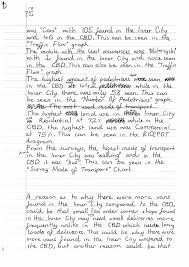 was 'Cars' with 105 found in the Inner City
and 46 in the CBD. This can be seen in the
'Traffic Flow' graph.
The vehicle with the least occurrence was 'Motorcycle'
with 1 found in the Inner City and none seen
in the CBD. This can also be seen in the 'Traffic
Flow' graph.
The highest amount of pedestrians were seen
in the CBD at pedestrians while in the
Inner City there was only 58 seen. This can
be seen in the 'Number Of Pedestrians' graph.
The highest land use in the Inner City
is Residential at 72% while in
the CBD, the highest land use was Commercial
at 75%. This can be seen in the
graph.
From the surveys, the highest mode of transport
in the Inner City was walking and in the
CBD it was 'Bus'. This can be seen in the
'Survey Mode of Transport' Chart.
A reason as to why there were more vans
found in the Inner City compared to the CBD,
could be that small corner shops found
in the Inner City may need small deliveries more
frequently unlike in the CBD which take long
loads of deliveries. This could be why there were
more vans found in the Inner City compared
to the CBD, but another reason could be that